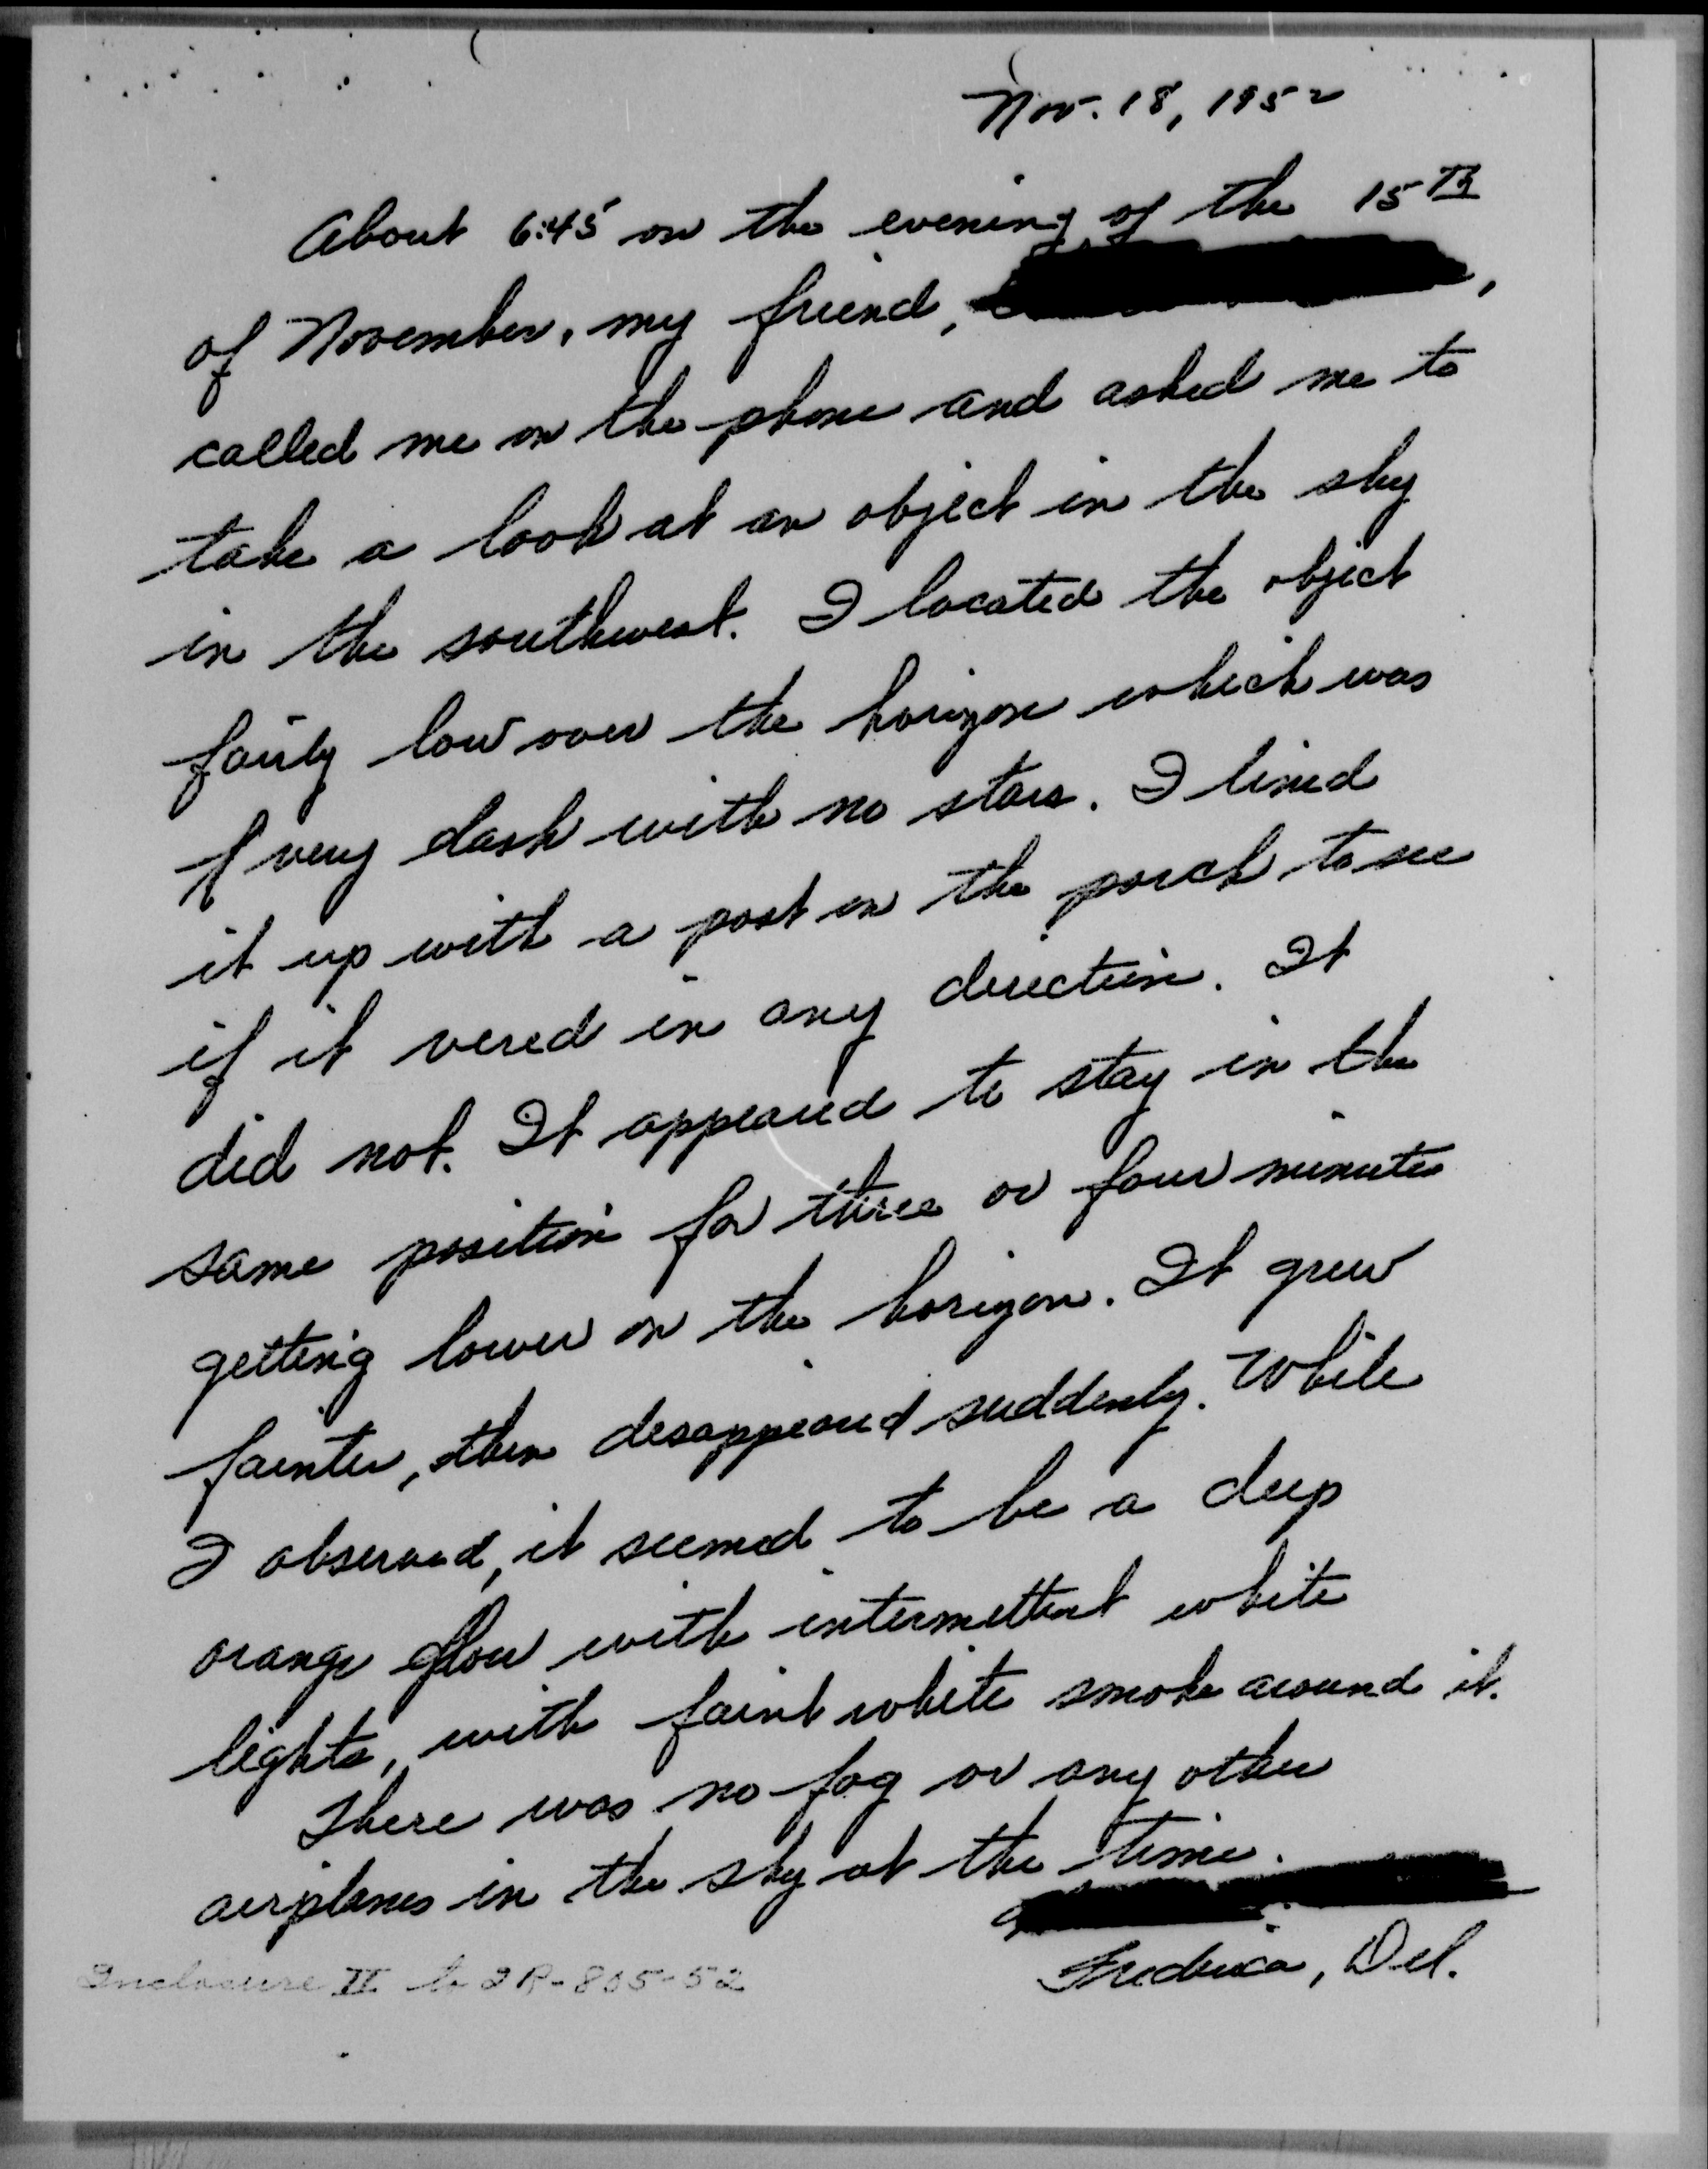 Nov. 18, 1952
About 6:45 on the evening of the 15th
of November, my friend, ,
called me on the phone and asked me to
take a look at an object in the sky
in the southwest. I located the object
fairly low over the horizon which was
very dark with no stars. I lined
it up with a post on the porch to see
if it vered in any direction. It
did not. It appeared to stay in the
same position for three or four minutes
getting lower on the horizon. It grew
fainter, then disappeared suddenly. While
I observed, it seemed to be a deep
orange glow with intermittent white
lights, with faint white smoke around it.
There was no fog or any other
airplanes in the sky at the time.
Frederica, Del.
Inclosure II to IR-805-52